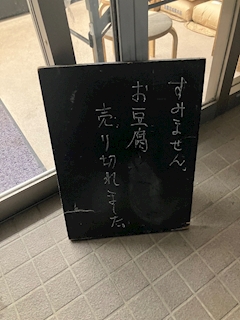 すみません。
お豆腐
売り切れました。